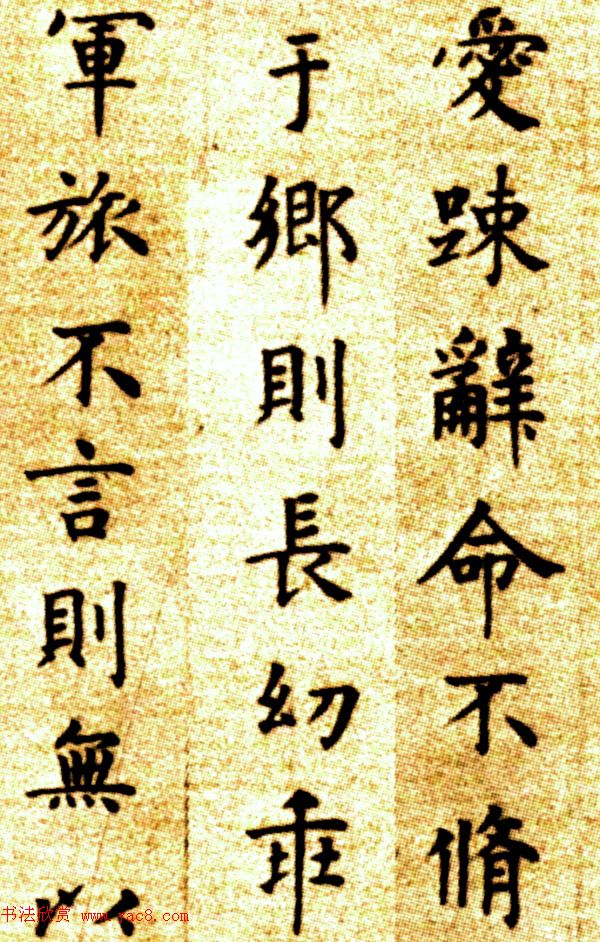 愛踈辭命不脩
于鄉則長幼乖
軍旅不言則無以
书法欣赏 www.yac8.com